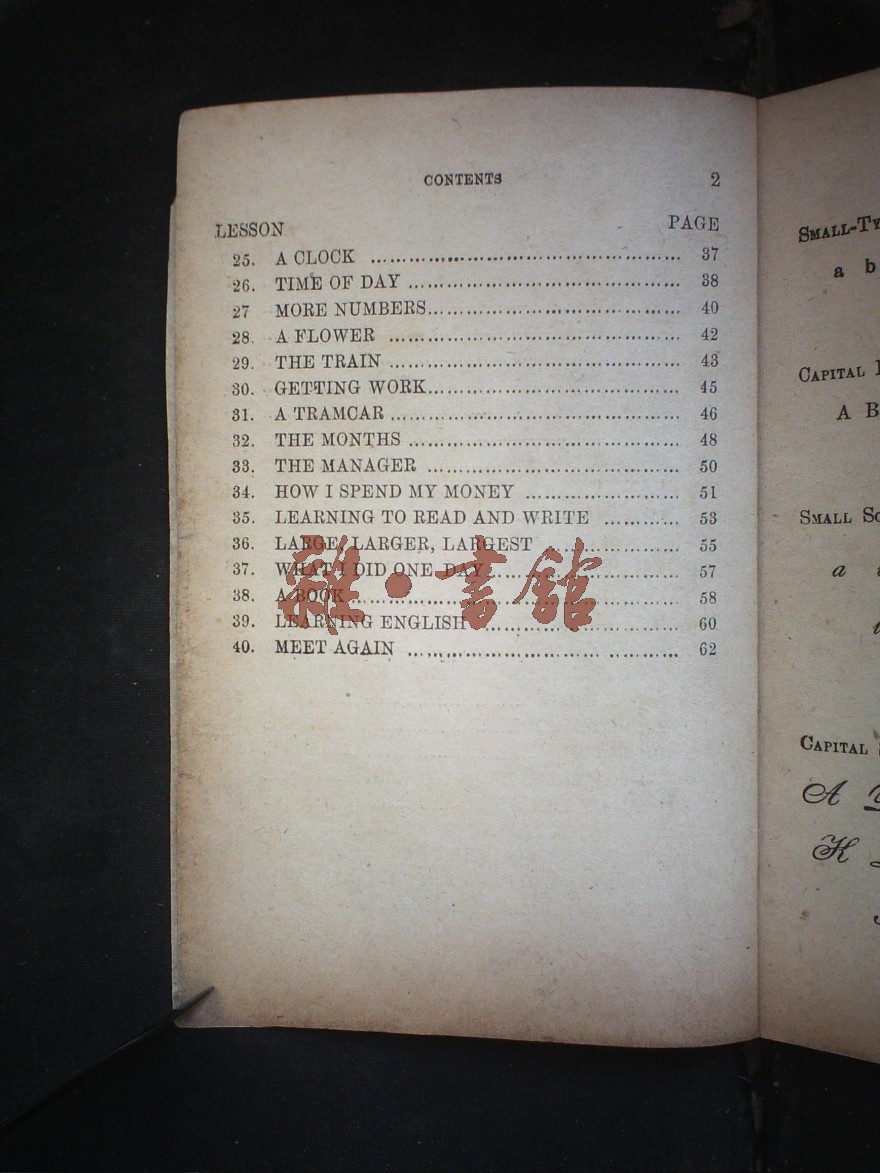 CONTENTS 2
LESSON PAGE
25. A CLOCK ........ 37
26. TIME OF DAY ........ 38
27 MORE NUMBERS ........ 40
28. A FLOWER ........ 42
29. THE TRAIN ........ 43
30. GETTING WORK ........ 45
31. A TRAMCAR ........ 46
32. THE MONTHS ........ 48
33. THE MANAGER ........ 50
34. HOW I SPEND MY MONEY ........ 51
35. LEARNING TO READ AND WRITE ........ 53
36. LARGE, LARGER, LARGEST ........ 55
37. WHAT I DID ONE DAY ........ 57
38. A BOOK ........ 58
39. LEARNING ENGLISH ........ 60
40. MEET AGAIN ........ 62
雜·書館
SMALL-TY
a b
CAPITAL
A B
SMALL SC
a
CAPITAL
A
K